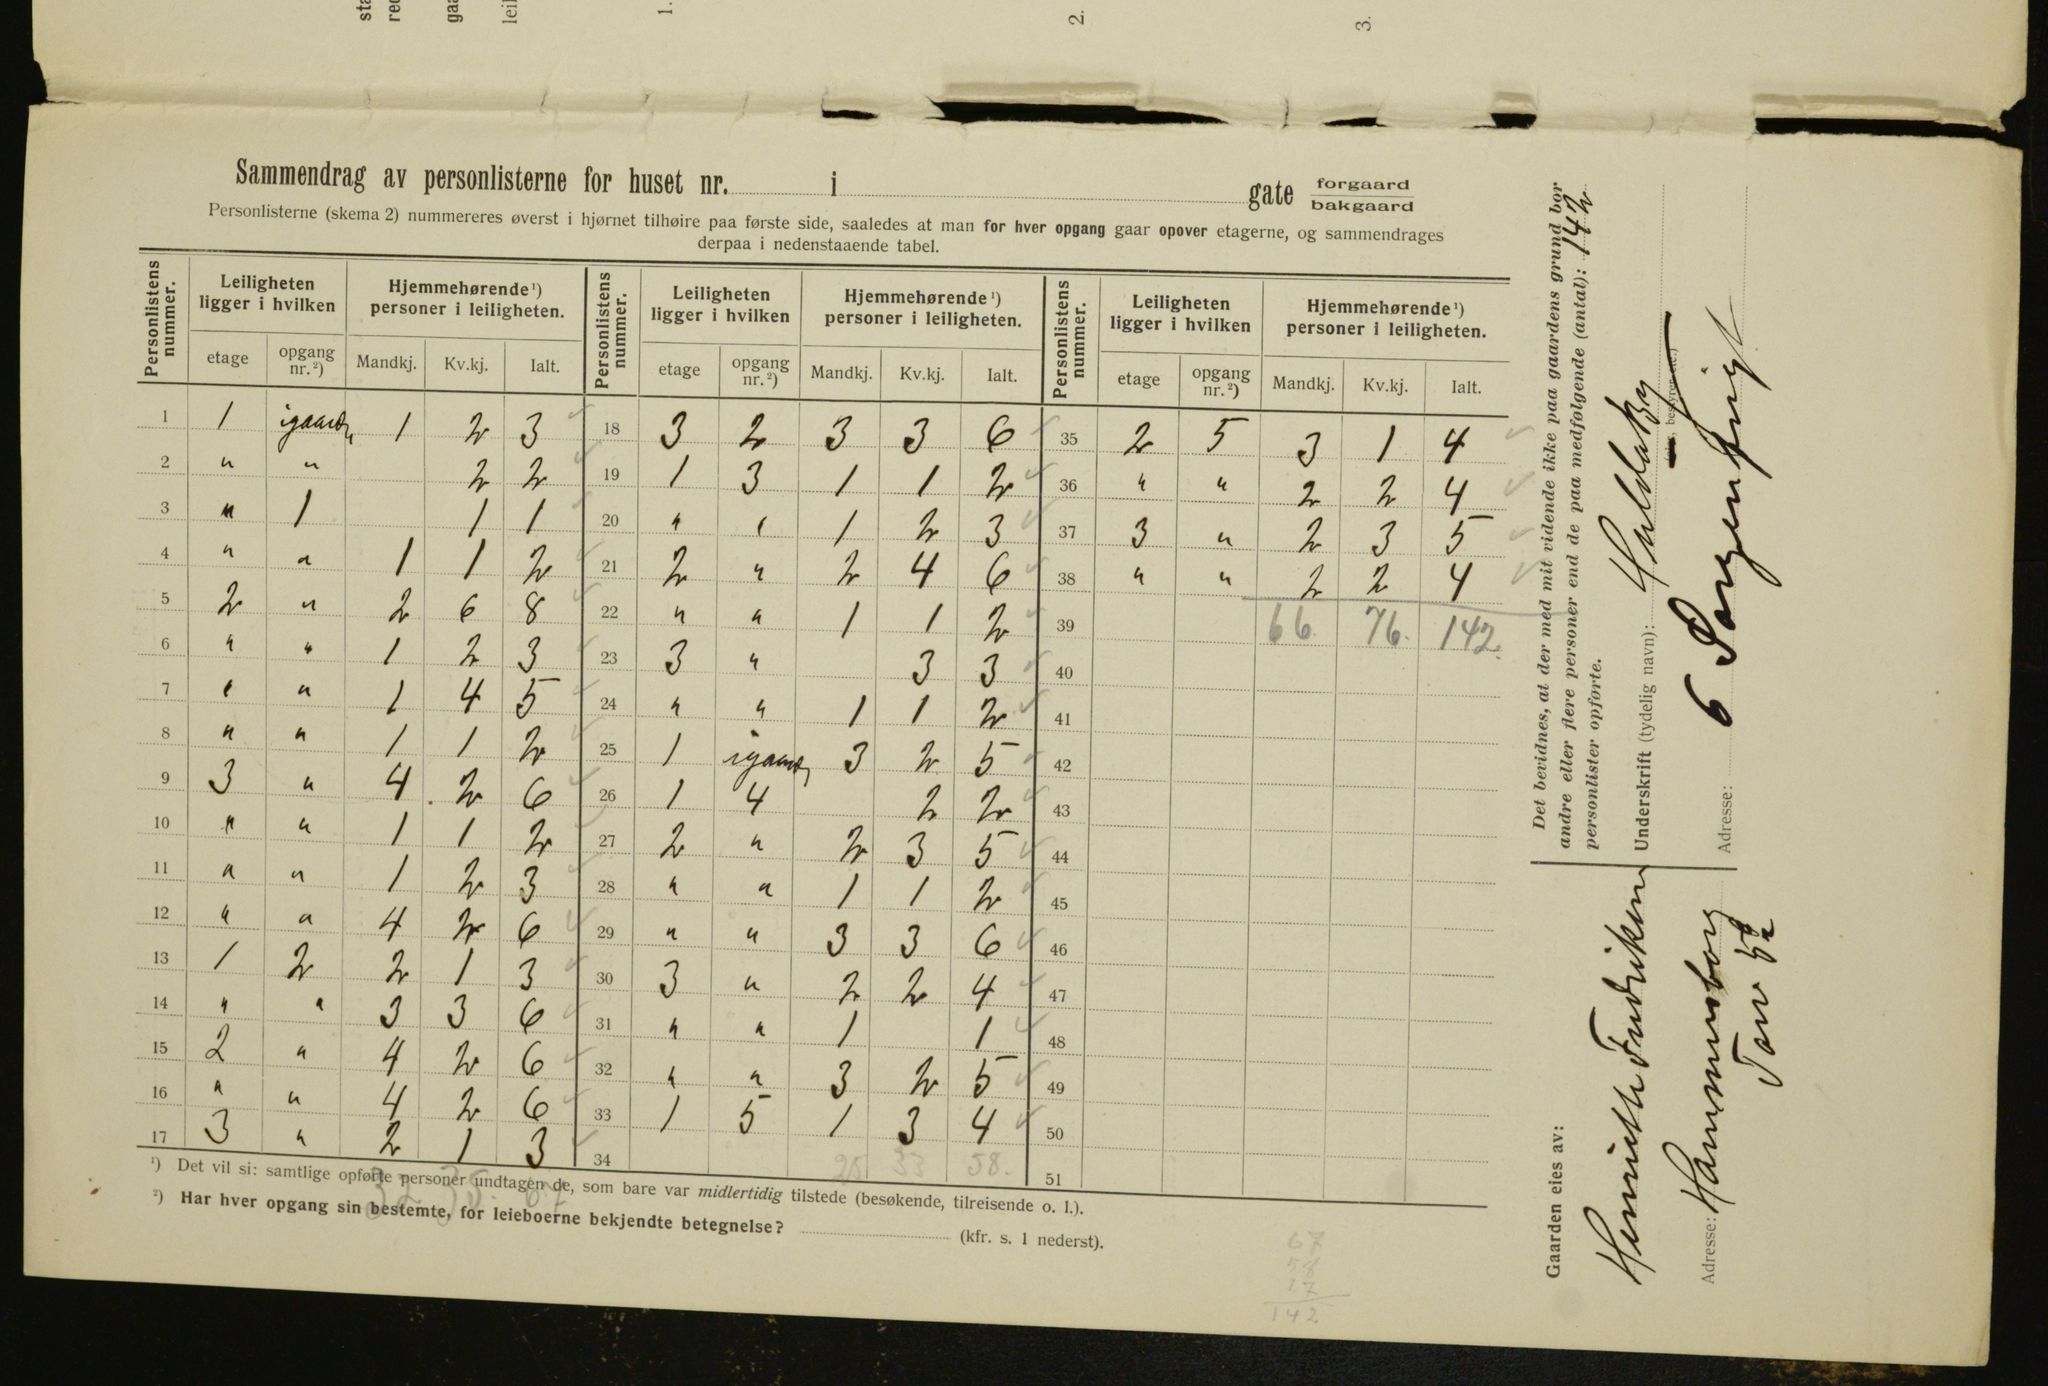 sta
red
gaa
leil
1.
2.
3.
Sammendrag av personlisterne for huset nr. i gate forgaard bakgaard
Personlisterne (skema 2) nummereres øverst i hjørnet tilhøire paa første side, saaledes at man for hver opgang gaar opover etagerne, og sammendrages
derpaa i nedenstaaende tabel.
Personlistens nummer. Leiligheten ligger i hvilken Hjemmehørende ¹) personer i leiligheten. Personlistens nummer. Leiligheten ligger i hvilken Hjemmehørende ¹) personer i leiligheten. Personlistens nummer. Leiligheten ligger i hvilken Hjemmehørende ¹) personer i leiligheten.
etage opgang nr. ²) Mandkj. Kv.kj. Ialt. etage opgang nr. ²) Mandkj. Kv.kj. Ialt. etage opgang nr. ²) Mandkj. Kv.kj. Ialt.
1 1 igaarden 1 2 3 18 3 2 3 3 6 35 2 5 3 1 4
2 " " 2 2 19 1 3 1 1 2 36 " " 2 2 4
3 " 1 1 1 20 " " 1 2 3 37 3 " 2 3 5
4 " " 1 1 2 21 2 " 2 4 6 38 " " 2 2 4
5 2 " 2 6 8 22 " " 1 1 2 39 66 76 142
6 " " 1 2 3 23 3 " 3 3 40
7 " " 1 4 5 24 " " 1 1 2 41
8 " " 1 1 2 25 1 igaarden 3 2 5 42
9 3 " 4 2 6 26 1 4 2 2 43
10 " " 1 1 2 27 2 " 2 3 5 44
11 " " 1 2 3 28 " " 1 1 2 45
12 " " 4 2 6 29 " " 3 3 6 46
13 1 2 2 1 3 30 3 " 2 2 4 47
14 " " 3 3 6 31 " " 1 1 48
15 2 " 4 2 6 32 " " 3 2 5 49
16 " " 4 2 6 33 1 5 1 3 4 50
17 3 " 2 1 3 34 25 33 58 51
32 35 67
¹) Det vil si: samtlige opførte personer undtagen de, som bare var midlertidig tilstede (besøkende, tilreisende o. l.).
²) Har hver opgang sin bestemte, for leieboerne bekjendte betegnelse? (kfr. s. 1 nederst).
67
58
17
142
Det bevidnes, at der med mit vidende ikke paa gaardens grund bor
andre eller flere personer end de paa medfølgende (antal): 142
personlister opførte.
Underskrift (tydelig navn):
Adresse: 6
Gaarden eies av:
Henriette Fredriksen
Adresse: Hammersborg
Torv